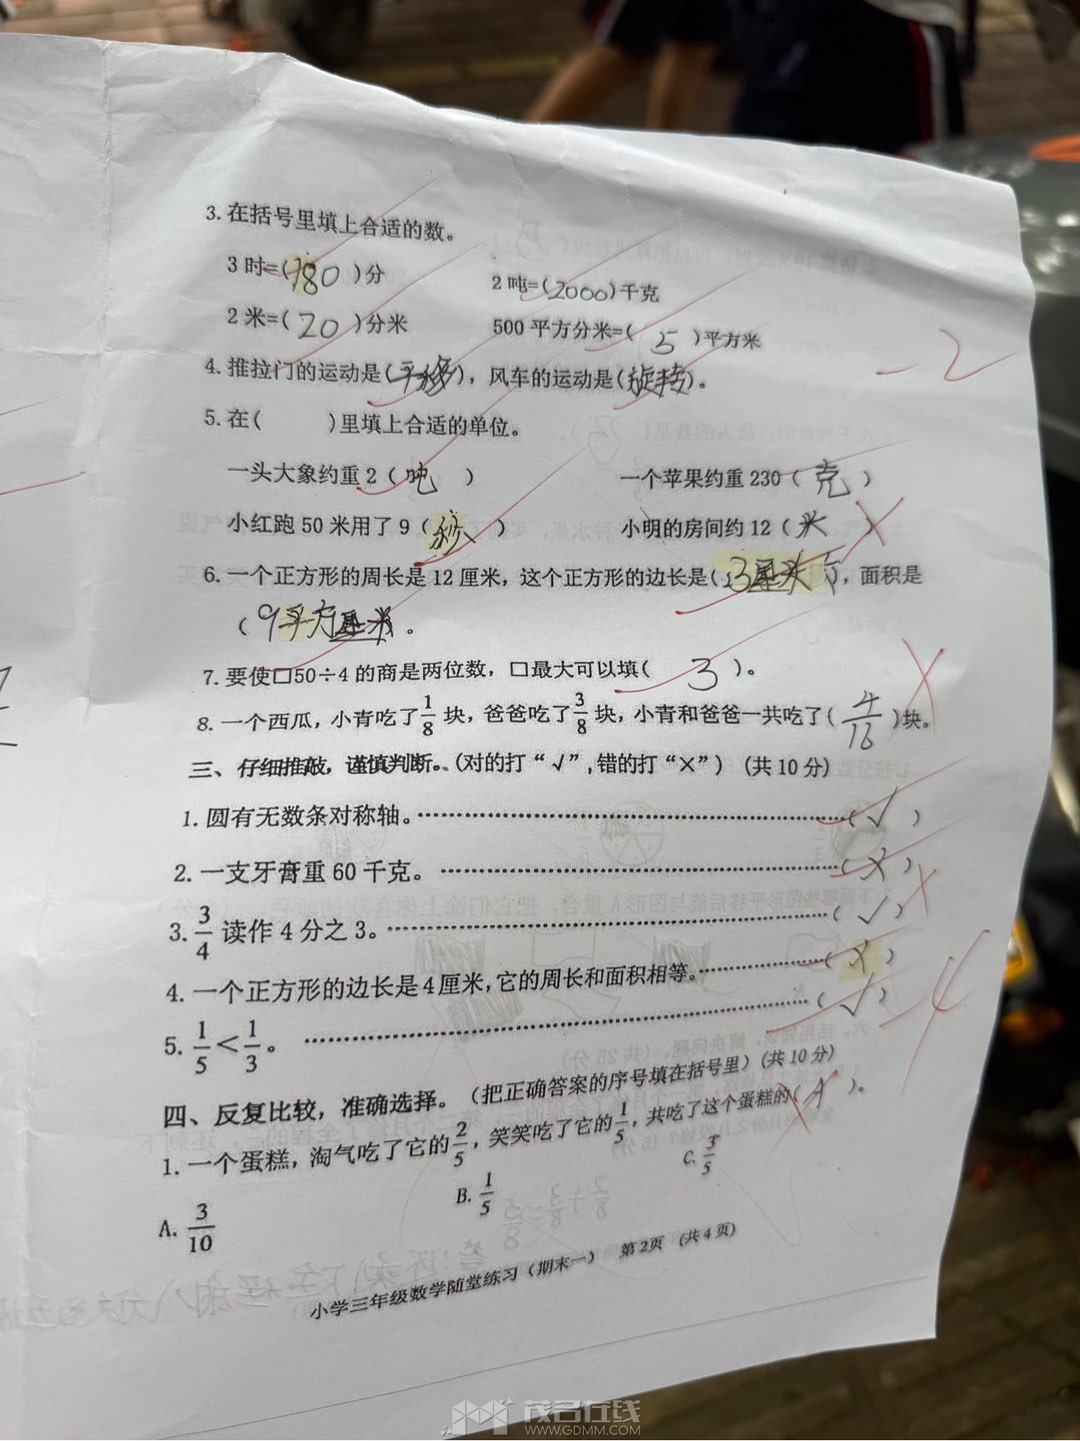 3.在括号里填上合适的数。
3时=(180)分 2吨=(2000)千克
2米=(20)分米 500平方分米=(5)平方米
-2
4.推拉门的运动是(平移),风车的运动是(旋转)。
5.在( )里填上合适的单位。
一头大象约重2(吨) 一个苹果约重230(克)
小红跑50米用了9(秒) 小明的房间约12(米
6.一个正方形的周长是12厘米,这个正方形的边长是(3厘米),面积是
(9平方厘米。
7.要使□50÷4的商是两位数,□最大可以填(3)。
8.一个西瓜,小青吃了1/8块,爸爸吃了3/8块,小青和爸爸一共吃了(4/16)块。
三、仔细推敲,谨慎判断。(对的打“√”,错的打“×”)(共10分)
1.圆有无数条对称轴。……(√)
2.一支牙膏重60千克。……(×)
3. 3/4读作4分之3。……(√)
4.一个正方形的边长是4厘米,它的周长和面积相等。……(×)
5. 1/5<1/3。……(√)
-4
四、反复比较,准确选择。(把正确答案的序号填在括号里)(共10分)
1.一个蛋糕,淘气吃了它的2/5,笑笑吃了它的1/5,共吃了这个蛋糕的(A)。
A. 3/10 B. 1/5 C. 3/5
小学三年级数学随堂练习(期末一) 第2页 (共4页)
茂名在线
WWW.GDMM.COM